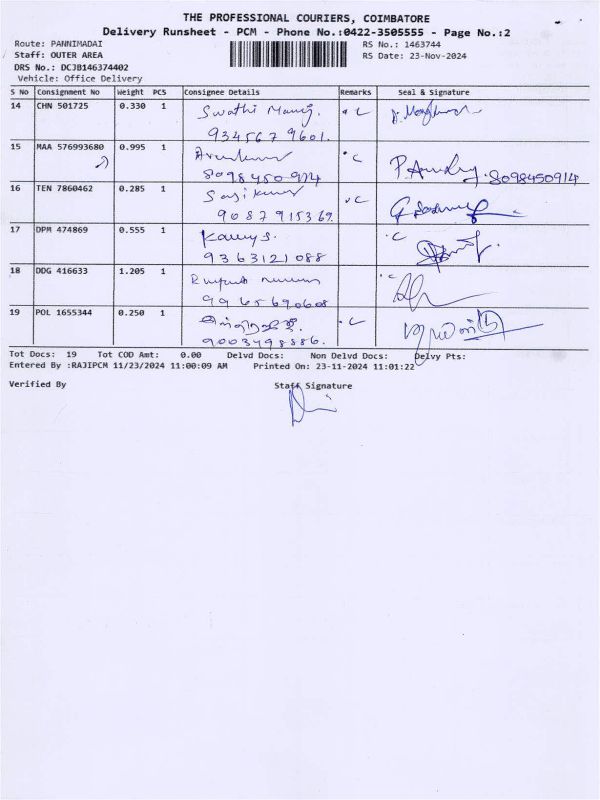 THE PROFESSIONAL COURIERS, COIMBATORE
Delivery Runsheet - PCM - Phone No.:0422-3505555 - Page No.:2
Route: PANNIMADAI RS No.: 1463744
Staff: OUTER AREA RS Date: 23-Nov-2024
DRS No.: DCJB146374402
Vehicle: Office Delivery
S No Consignment No Weight PCS Consignee Details Remarks Seal & Signature
14 CHN 501725 0.330 1 Swathi
934567 9601.
15 MAA 576993680 0.995 1
8098450914 8098450914
16 TEN 7860462 0.285 1 Sasikumar
9087915369
17 DPM 474869 0.555 1
9363121088
18 DDG 416633 1.205 1
9965690608
19 POL 1655344 0.250 1
9003498886.
Tot Docs: 19 Tot COD Amt: 0.00 Delvd Docs: Non Delvd Docs: Delvy Pts:
Entered By :RAJIPCM 11/23/2024 11:00:09 AM Printed On: 23-11-2024 11:01:22
Verified By Staff Signature